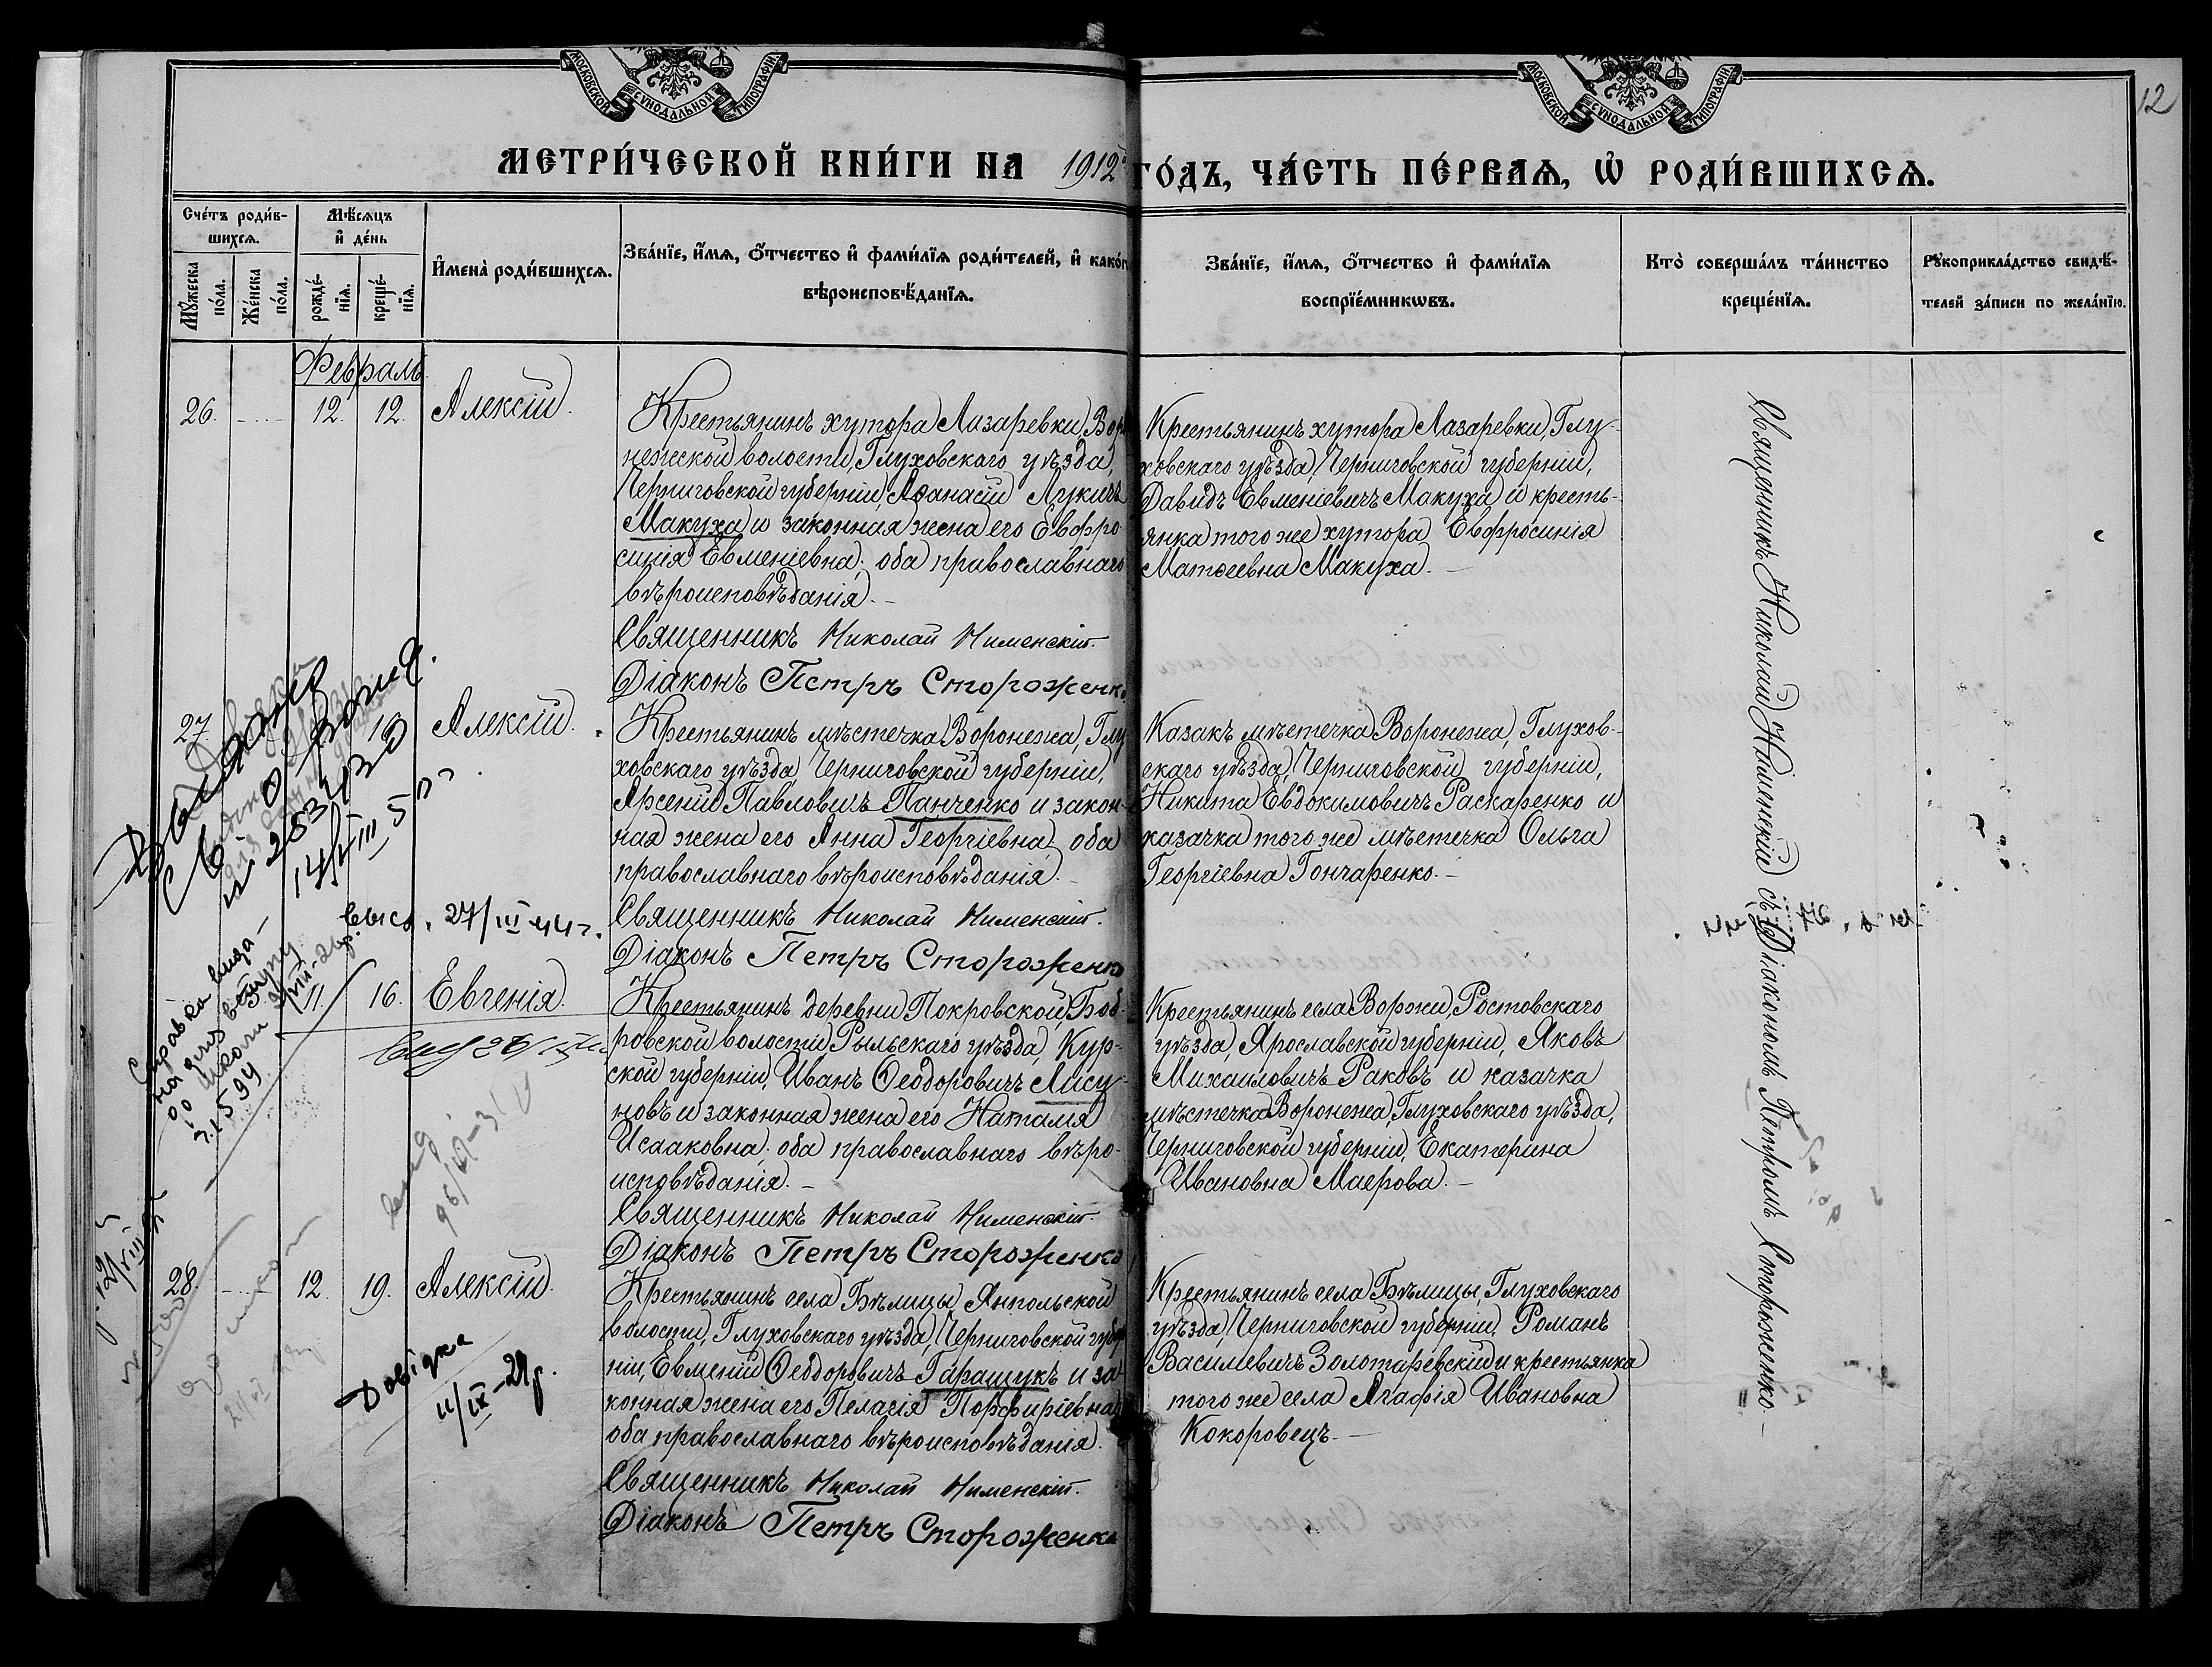 МОСКОВСКОЙ СѴНОДАЛЬНОЙ ТИПОГРАФІИ
МОСКОВСКОЙ СѴНОДАЛЬНОЙ ТИПОГРАФІИ
12
МЕТРИ́ЧЕСКОЙ КНИ́ГИ НА 1912й ГО́ДЪ, ЧА́СТЬ ПЕ́РВАѦ, Ѽ РОДИ́ВШИХСѦ.
Сче́тъ роди́в-
шихсѧ.
Мꙋжеска по́ла.
Же́нска по́ла.
Мѣ́сѧцъ
и҆ де́нь
рожде́-
нїѧ.
креще́-
нїѧ.
И҆мена̀ роди́вшихсѧ.
Зва́нїе, и҆́мѧ, ѻ҆́тчество и҆ фами́лїѧ роди́телей, и҆ како́г
вѣроисповѣ́данїѧ.
Зва́нїе, и҆́мѧ, ѻ҆́тчество и҆ фами́лїѧ
воспрїе́мникѡвъ.
Кто̀ соверша́лъ та́инство
креще́нїѧ.
Рꙋкоприкла́дство свидѣ́-
телей за́писи по жела́нїю.
Февраль
26. 12. 12. Алексій.
Крестьянинъ хутора Лазаревки, Воро
нежской волости, Глуховскаго уѣзда,
Черниговской губерніи, Аѳанасій Лукичъ
Макуха и законная жена его Евфро-
синія Евменіевна; оба православнаго
вѣроисповѣданія.
Священникъ Николай Нименскій.
Діаконъ Петръ Стороженко
Крестьянинъ хутора Лазаревки, Глу-
ховскаго уѣзда, Черниговской губерніи,
Давидъ Евменіевичъ Макуха и кресть-
янка того же хутора Евфросинія
Матѳеевна Макуха.
Священникъ Николай Нименскій съ Діакономъ Петромъ Стороженко.
27. 13 Алексій.
Крестьянинъ мѣстечка Воронежа, Глу
ховскаго уѣзда, Черниговской губерніи,
Арсеній Павловичъ Панченко и закон-
ная жена его Анна Георгіевна, оба
православнаго вѣроисповѣданія.
Священникъ Николай Нименскій.
Діаконъ Петръ Стороженко
Казакъ мѣстечка Воронежа, Глухов-
скаго уѣзда, Черниговской губерніи,
Никита Евдокимовичъ Раскаренко и
казачка того же мѣстечка Ольга
Георгіевна Гончаренко.
14/VIII 5
27/III 44 г.
11 16. Евгенія.
Крестьянинъ деревни Покровской, Боб-
ровской волости, Рыльскаго уѣзда, Кур-
ской губерніи, Иванъ Ѳеодоровичъ Лису-
новъ и законная жена его Наталія
Исааковна. оба православнаго вѣро-
исповѣданія.
Священникъ Николай Нименскій.
Діаконъ Петръ Стороженко
Крестьянинъ села Воржи, Ростовскаго
уѣзда, Ярославской губерніи, Яковъ
Михаиловичъ Раковъ и казачка
мѣстечка Воронежа, Глуховскаго уѣзда,
Черниговской губерніи, Екатерина
Ивановна Маерова.
Справка выда-
на для вступу
до школи
28. 12. 19. Алексій.
Крестьянинъ села Бѣлицы, Янпольской
волости, Глуховскаго уѣзда, Черниговской губер
ніи, Евменій Ѳеодоровичъ Гаращукъ и за-
конная жена его Пелагія Порфиріевна
оба православнаго вѣроисповѣданія.
Священникъ Николай Нименскій.
Діаконъ Петръ Стороженко
Крестьянинъ села Бѣлицы, Глуховскаго
уѣзда, Черниговской губерніи, Романъ
Василіевичъ Золотаревскій и крестьянка
того же села Агафія Ивановна
Кокоровецъ.
Довідка
11/IX-29р.